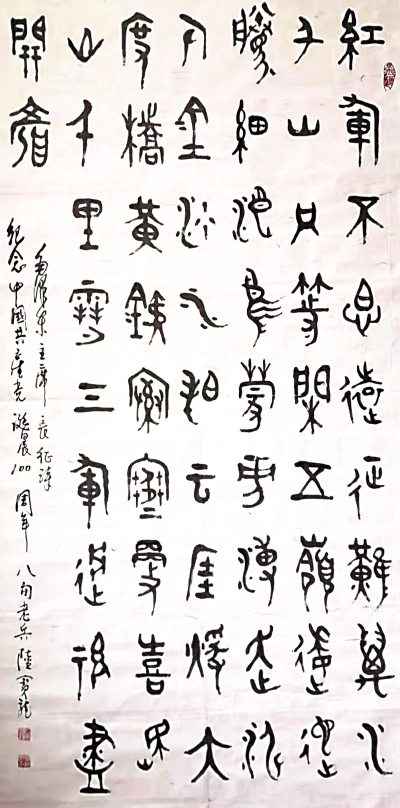 紅軍不怕遠征難萬水
千山只等閒五嶺逶迤
騰細浪烏蒙旁薄走泥
丸金沙水拍云崖暖大
度橋黃鐵索寒更喜岷
山千里雪三軍過後盡
開顏
毛澤東主席 長征詩
紀念中國共產党誕晨100周年 八旬老兵陸